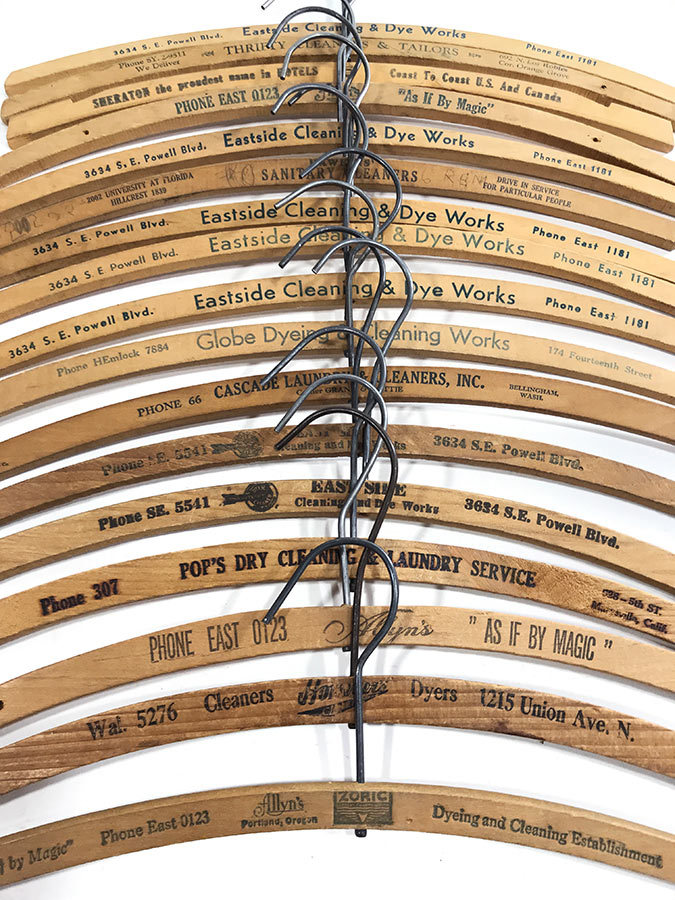 3634 S. E. Powell Blvd. Eastside Cleaning & Dye Works Phone East 1181
Phone SY. 2-9511 THRIFTY CLEANERS & TAILORS 692 N. Los Robles
We Deliver Cor. Orange Grove
SHERATON the proudest name in HOTELS Coast To Coast U.S. And Canada
PHONE EAST 0123 "As If By Magic"
3634 S. E. Powell Blvd. Eastside Cleaning & Dye Works Phone East 1181
2002 UNIVERSITY AT FLORIDA SANITARY CLEANERS DRIVE IN SERVICE
HILLCREST 1839 FOR PARTICULAR PEOPLE
3634 S. E. Powell Blvd. Eastside Cleaning & Dye Works Phone East 1181
3634 S. E. Powell Blvd. Eastside Cleaning & Dye Works Phone East 1181
3634 S. E. Powell Blvd. Eastside Cleaning & Dye Works Phone East 1181
Phone HEmlock 7884 Globe Dyeing & Cleaning Works 174 Fourteenth Street
PHONE 66 CASCADE LAUNDRY & CLEANERS, INC. BELLINGHAM,
WASH.
Phone SE. 5541 Cleaning and Works 3634 S.E. Powell Blvd.
Phone SE. 5541 EAST SIDE 3634 S.E. Powell Blvd.
Cleaning and Dye Works
Phone 307 POP'S DRY CLEANING & LAUNDRY SERVICE 5th ST.
Marysville, Calif.
PHONE EAST 0123 Allyn's "AS IF BY MAGIC"
Wal. 5276 Cleaners Dyers 1215 Union Ave. N.
by Magic" Phone East 0123 Allyn's ZORIC Dyeing and Cleaning Establishment
Portland, Oregon